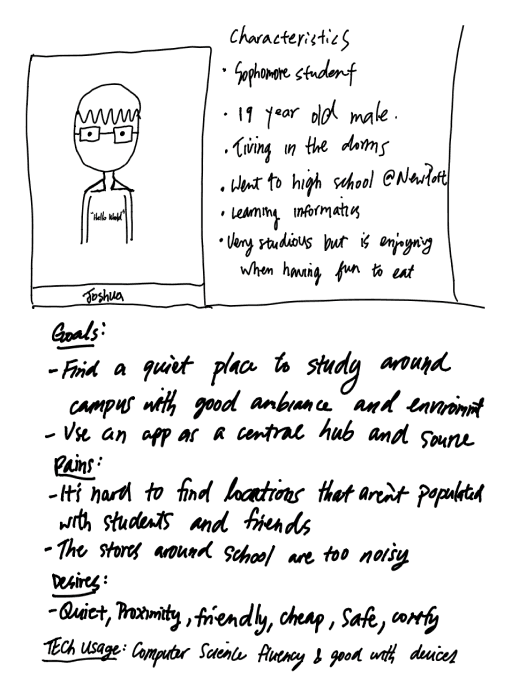 Characteristics
• Sophomore student
• 19 year old male.
• Living in the dorms
• Went to high school @Newport
• Learning informatics
• Very studious but is enjoying
when having fun to eat
"Hello World"
Joshua
Goals:
- Find a quiet place to study around
campus with good ambiance and environmt
- Use an app as a central hub and source
Pains:
- It's hard to find locations that aren't populated
with students and friends
- The stores around school are too noisy
Desires:
- Quiet, Proximity, friendly, cheap, Safe, comfy
TECH USAGE: Computer Science fluency & good with devices